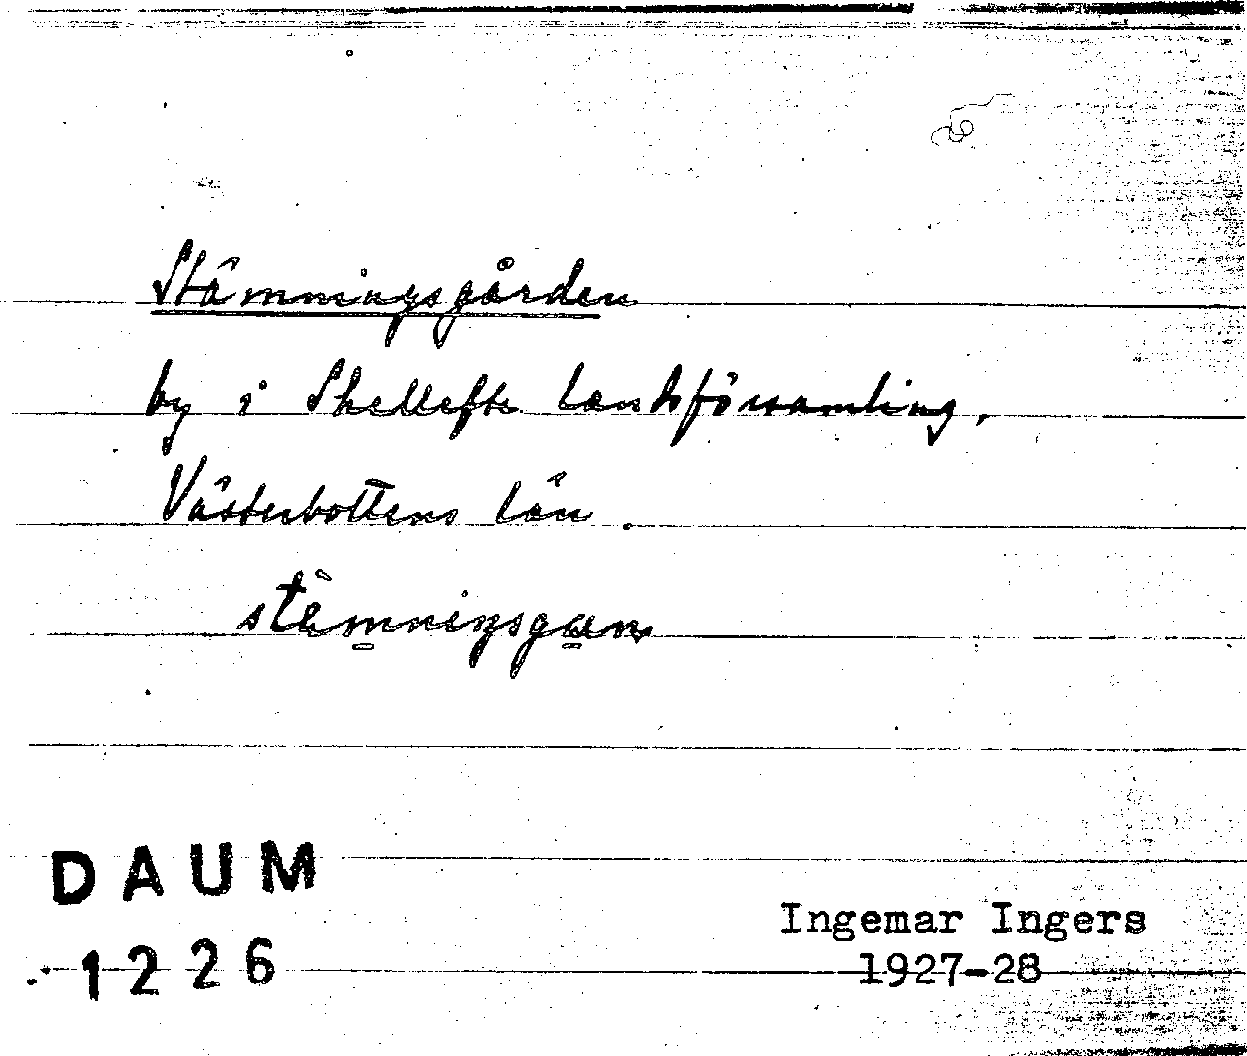 Stämningsgården
by i Skellefte landsförsamling,
Västerbottens län.
stèmningsgan
DAUM
1226
Ingemar Ingers
1927-28